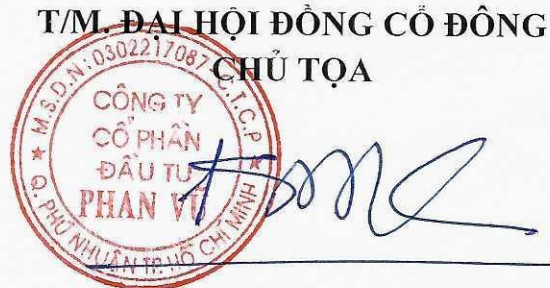 T/M. ĐẠI HỘI ĐỒNG CỔ ĐÔNG
CHỦ TỌA
M.S.D.N: 0302217087-C.T.C.P
CÔNG TY
CỔ PHẦN
ĐẦU TƯ
PHAN VŨ
Q. PHÚ NHUẬN TP. HỒ CHÍ MINH